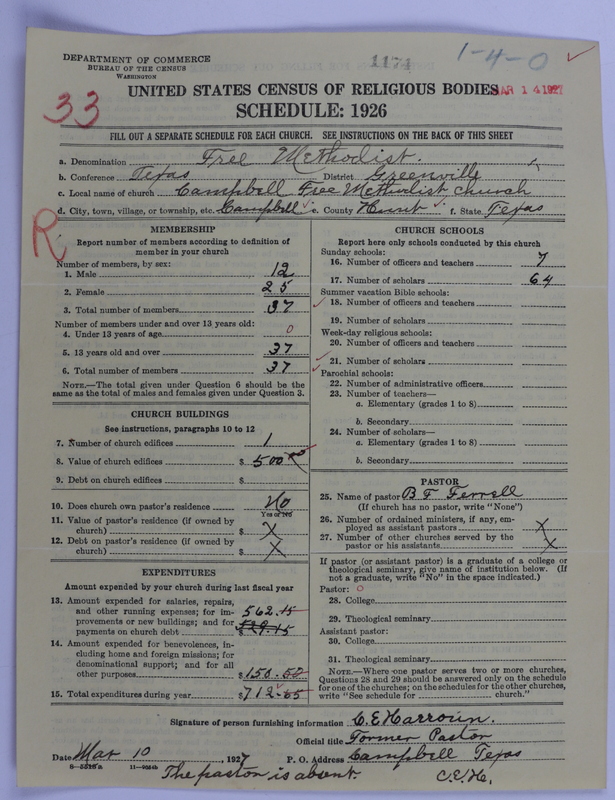 DEPARTMENT OF COMMERCE
BUREAU OF THE CENSUS
WASHINGTON
1174
1-4-0
MAR 14 1927
33
UNITED STATES CENSUS OF RELIGIOUS BODIES
SCHEDULE: 1926
FILL OUT A SEPARATE SCHEDULE FOR EACH CHURCH. SEE INSTRUCTIONS ON THE BACK OF THIS SHEET
a. Denomination Free Methodist.
b. Conference Texas District Greenville
c. Local name of church Campbell Free Methodist church
d. City, town, village, or township, etc. Campbell e. County Hunt f. State Texas
R
MEMBERSHIP
Report number of members according to definition of
member in your church
Number of members, by sex:
1. Male 12
2. Female 25
3. Total number of members 37
Number of members under and over 13 years old:
4. Under 13 years of age 0
5. 13 years old and over 37
6. Total number of members 37
NOTE.—The total given under Question 6 should be the
same as the total of males and females given under Question 3.
CHURCH BUILDINGS
See instructions, paragraphs 10 to 12
7. Number of church edifices 1
8. Value of church edifices $ 500 00
9. Debt on church edifices $
10. Does church own pastor's residence No
Yes or No
11. Value of pastor's residence (if owned by
church) $ X
12. Debt on pastor's residence (if owned by
church) $ X
EXPENDITURES
Amount expended by your church during last fiscal year
13. Amount expended for salaries, repairs,
and other running expenses; for im-
provements or new buildings; and for
payments on church debt 562.15
$ 529.15
14. Amount expended for benevolences, in-
cluding home and foreign missions; for
denominational support; and for all
other purposes $ 150.50
15. Total expenditures during year $ 712.65
CHURCH SCHOOLS
Report here only schools conducted by this church
Sunday schools:
16. Number of officers and teachers 7
17. Number of scholars 64
Summer vacation Bible schools:
18. Number of officers and teachers
19. Number of scholars
Week-day religious schools:
20. Number of officers and teachers
21. Number of scholars
Parochial schools:
22. Number of administrative officers
23. Number of teachers—
a. Elementary (grades 1 to 8)
b. Secondary
24. Number of scholars—
a. Elementary (grades 1 to 8)
b. Secondary
PASTOR
25. Name of pastor B F Ferrell
(If church has no pastor, write "None")
26. Number of ordained ministers, if any, em-
ployed as assistant pastors X
27. Number of other churches served by the
pastor or his assistants X
If pastor (or assistant pastor) is a graduate of a college or
theological seminary, give name of institution below. (If
not a graduate, write "No" in the space indicated.)
Pastor: 0
28. College
29. Theological seminary
Assistant pastor:
30. College
31. Theological seminary
NOTE.—Where one pastor serves two or more churches,
Questions 28 and 29 should be answered only on the schedule
for one of the churches; on the schedules for the other churches,
write "See schedule for church."
Signature of person furnishing information C. E Harroun.
Official title Former Pastor
Date Mar 10, 1927 P. O. Address Campbell Texas
The pastor is absent. C.E.H.